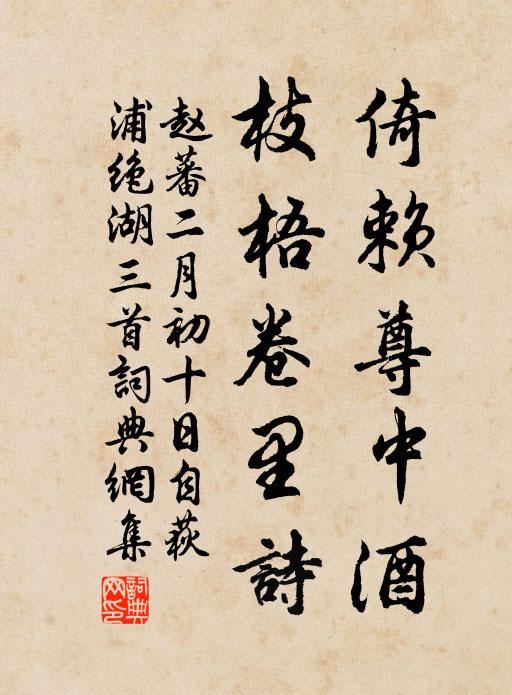 倚賴尊中酒
枝梧卷里詩
赵蕃二月初十日自荻
浦绝湖三首詞典網集
詞典
网印